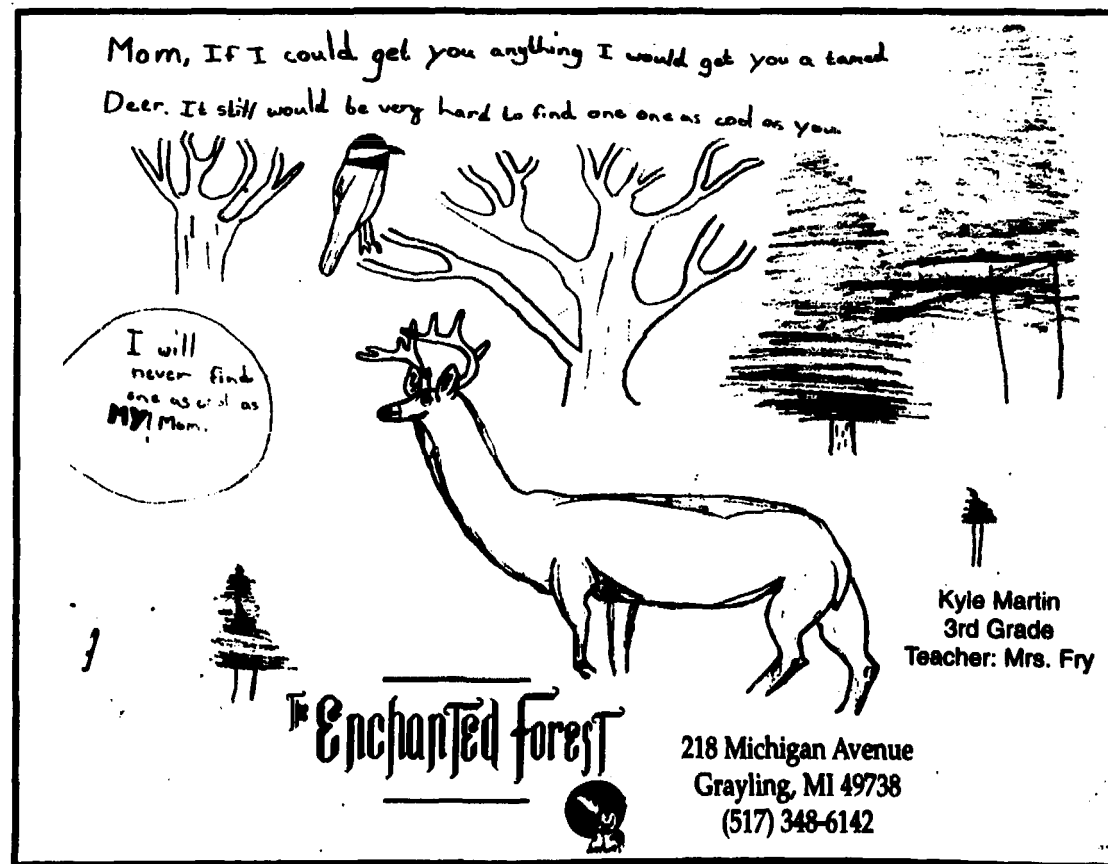 Mom, If I could get you anything I would get you a tamed
Deer. It still would be very hard to find one one as cool as you.
I will
never find
one as cool as
MY Mom.
Kyle Martin
3rd Grade
Teacher: Mrs. Fry
The Enchanted Forest
218 Michigan Avenue
Grayling, MI 49738
(517) 348-6142